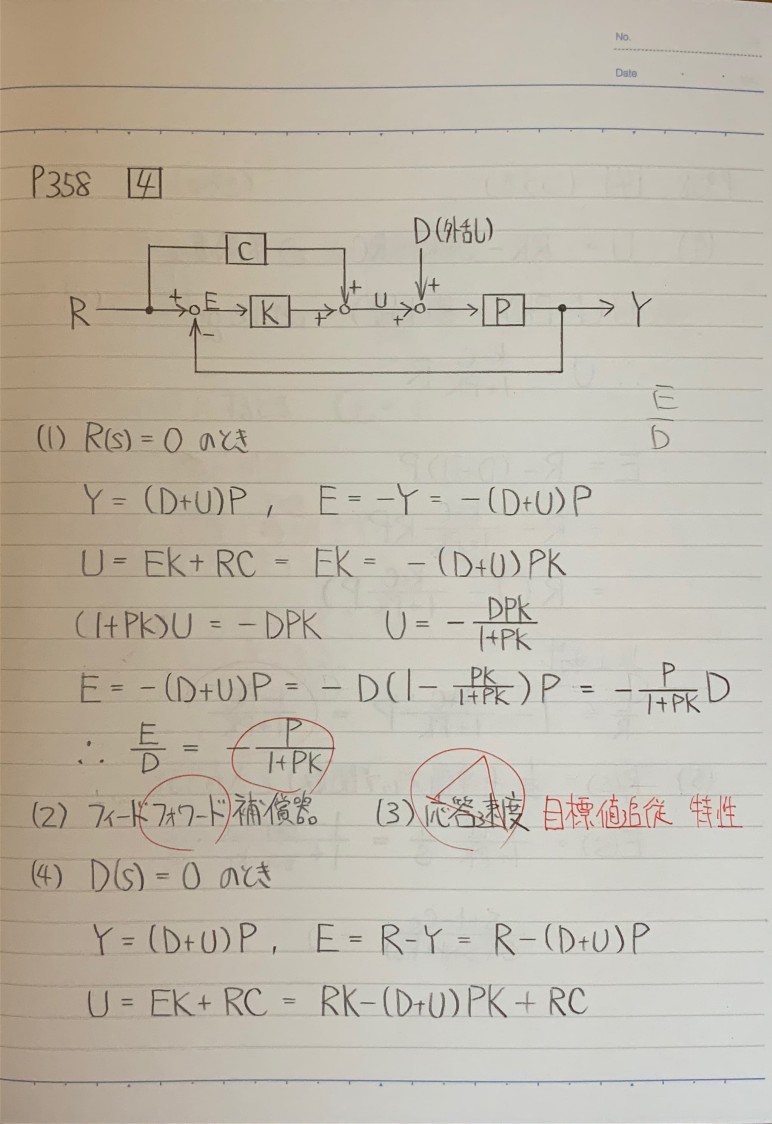 No.
Date
P358 4
C
D(外乱)
R + E K + + U + + P Y
−
E/D
(1) R(s) = 0 のとき
Y = (D+U)P , E = −Y = −(D+U)P
U = EK + RC = EK = −(D+U)PK
(1+PK)U = −DPK U = − DPK/1+PK
E = −(D+U)P = −D(1− PK/1+PK)P = − P/1+PK D
∴ E/D = − P/1+PK
(2) フィードフォワード補償器。 (3) 応答速度 目標値追従 特性
(4) D(s) = 0 のとき
Y = (D+U)P , E = R−Y = R−(D+U)P
U = EK + RC = RK−(D+U)PK + RC